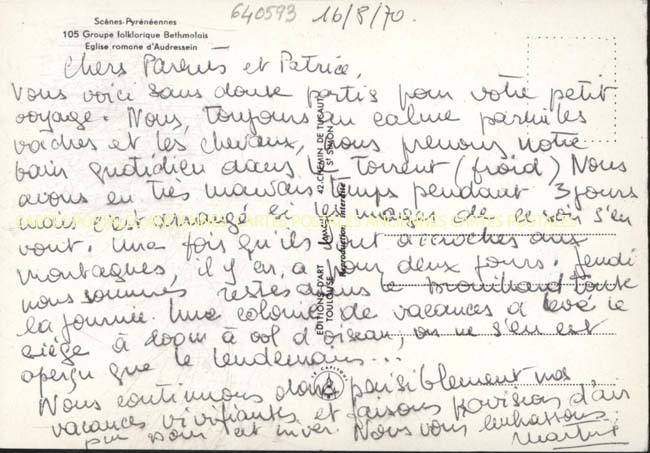 640593 16/8/70.
Scènes-Pyrénéennes
105 Groupe folklorique Bethmalais
Eglise romane d'Audressein
Chers Parents et Patrice,
Vous voici sans doute partis pour votre petit
voyage. Nous, toujours au calme parmi les
vaches et les chevaux, nous prenons notre
bain quotidien dans le torrent (froid) Nous
avons eu très mauvais temps pendant 3 jours
mais c'est et les nuages de ce soir s'en
vont. Une fois qu'ils sont accrochés aux
montagnes, il y en a pour deux jours. Jeudi
nous sommes restés dans le brouillard toute
la journée. Une colonie de vacances a levé le
siège à à vol d'oiseau, on ne s'en est
aperçu que le lendemain...
Nous continuons donc paisiblement nos
vacances vivifiantes et faisons provision d'air
pur pour cet hiver. Nous vous embrassons.
Martine
EDITIONS D'ART
TOULOUSE
42, CHEMIN DE TUCAUT
ST SIMON
Reproduction interdite
LE CAPITOLE
CARTES POSTALES ANCIENNES CARTES POSTALES ANCIENNES CARTES POSTALES